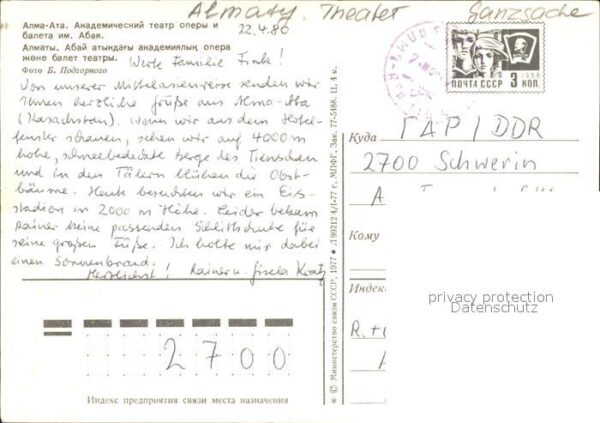 Almaty. Theater Ganzsache
Алма-Ата. Академический театр оперы и
балета им. Абая.
22.4.80
Алматы. Абай атындағы академиялық опера
және балет театры.
Фото Б. Подгорного
Werte Familie Fink!
Von unserer Mittelasienreise senden wir
Ihnen herzliche Grüße aus Alma-Ata
(Kasachstan). Wenn wir aus dem Hotel-
fenster schauen, sehen wir auf 4000 m
hohe, schneebedeckte Berge des Tienschan
und in den Tälern blühen die Obst-
bäume. Heute besuchten wir ein Eis-
stadion in 2000 m Höhe. Leider bekam
Rainer keine passenden Schlittschuhe für
seine großen Füße. Ich holte mir dabei
einen Sonnenbrand.
Herzlichst! Rainer u. Gisela
2700
Индекс предприятия связи места назначения
* © Министерство связи СССР. 1977 * Л 99212 4/I-77 г. МПФГ. Зак. 77-5188. Ц. 4 к.
1966
ПОЧТА СССР 3 КОП.
Куда ГДР / DDR
2700 Schwerin
Кому
Индекс
privacy protection
Datenschutz